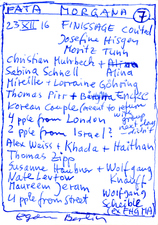 FATA MORGANA 7
23 XII 16 FINISSAGE coctail
Josefine Hisgen
Moritz Tunn
Christian Muhrbeck + Alina
Sabina Schnell Alina
Mireille + Lorraine Göhring
Thomas Pirr +
Korean Couple (want to return with
4 pple from London
2 pple from Israel?
Alex Weiss + Khada + Haithan
Thomas Zipp
Susanne Haubner + Wolfgang
Nate Levtow
Maureem Jeram Wolfgang
4 ppl from street Scheible
Berlin (ex PHGMA)